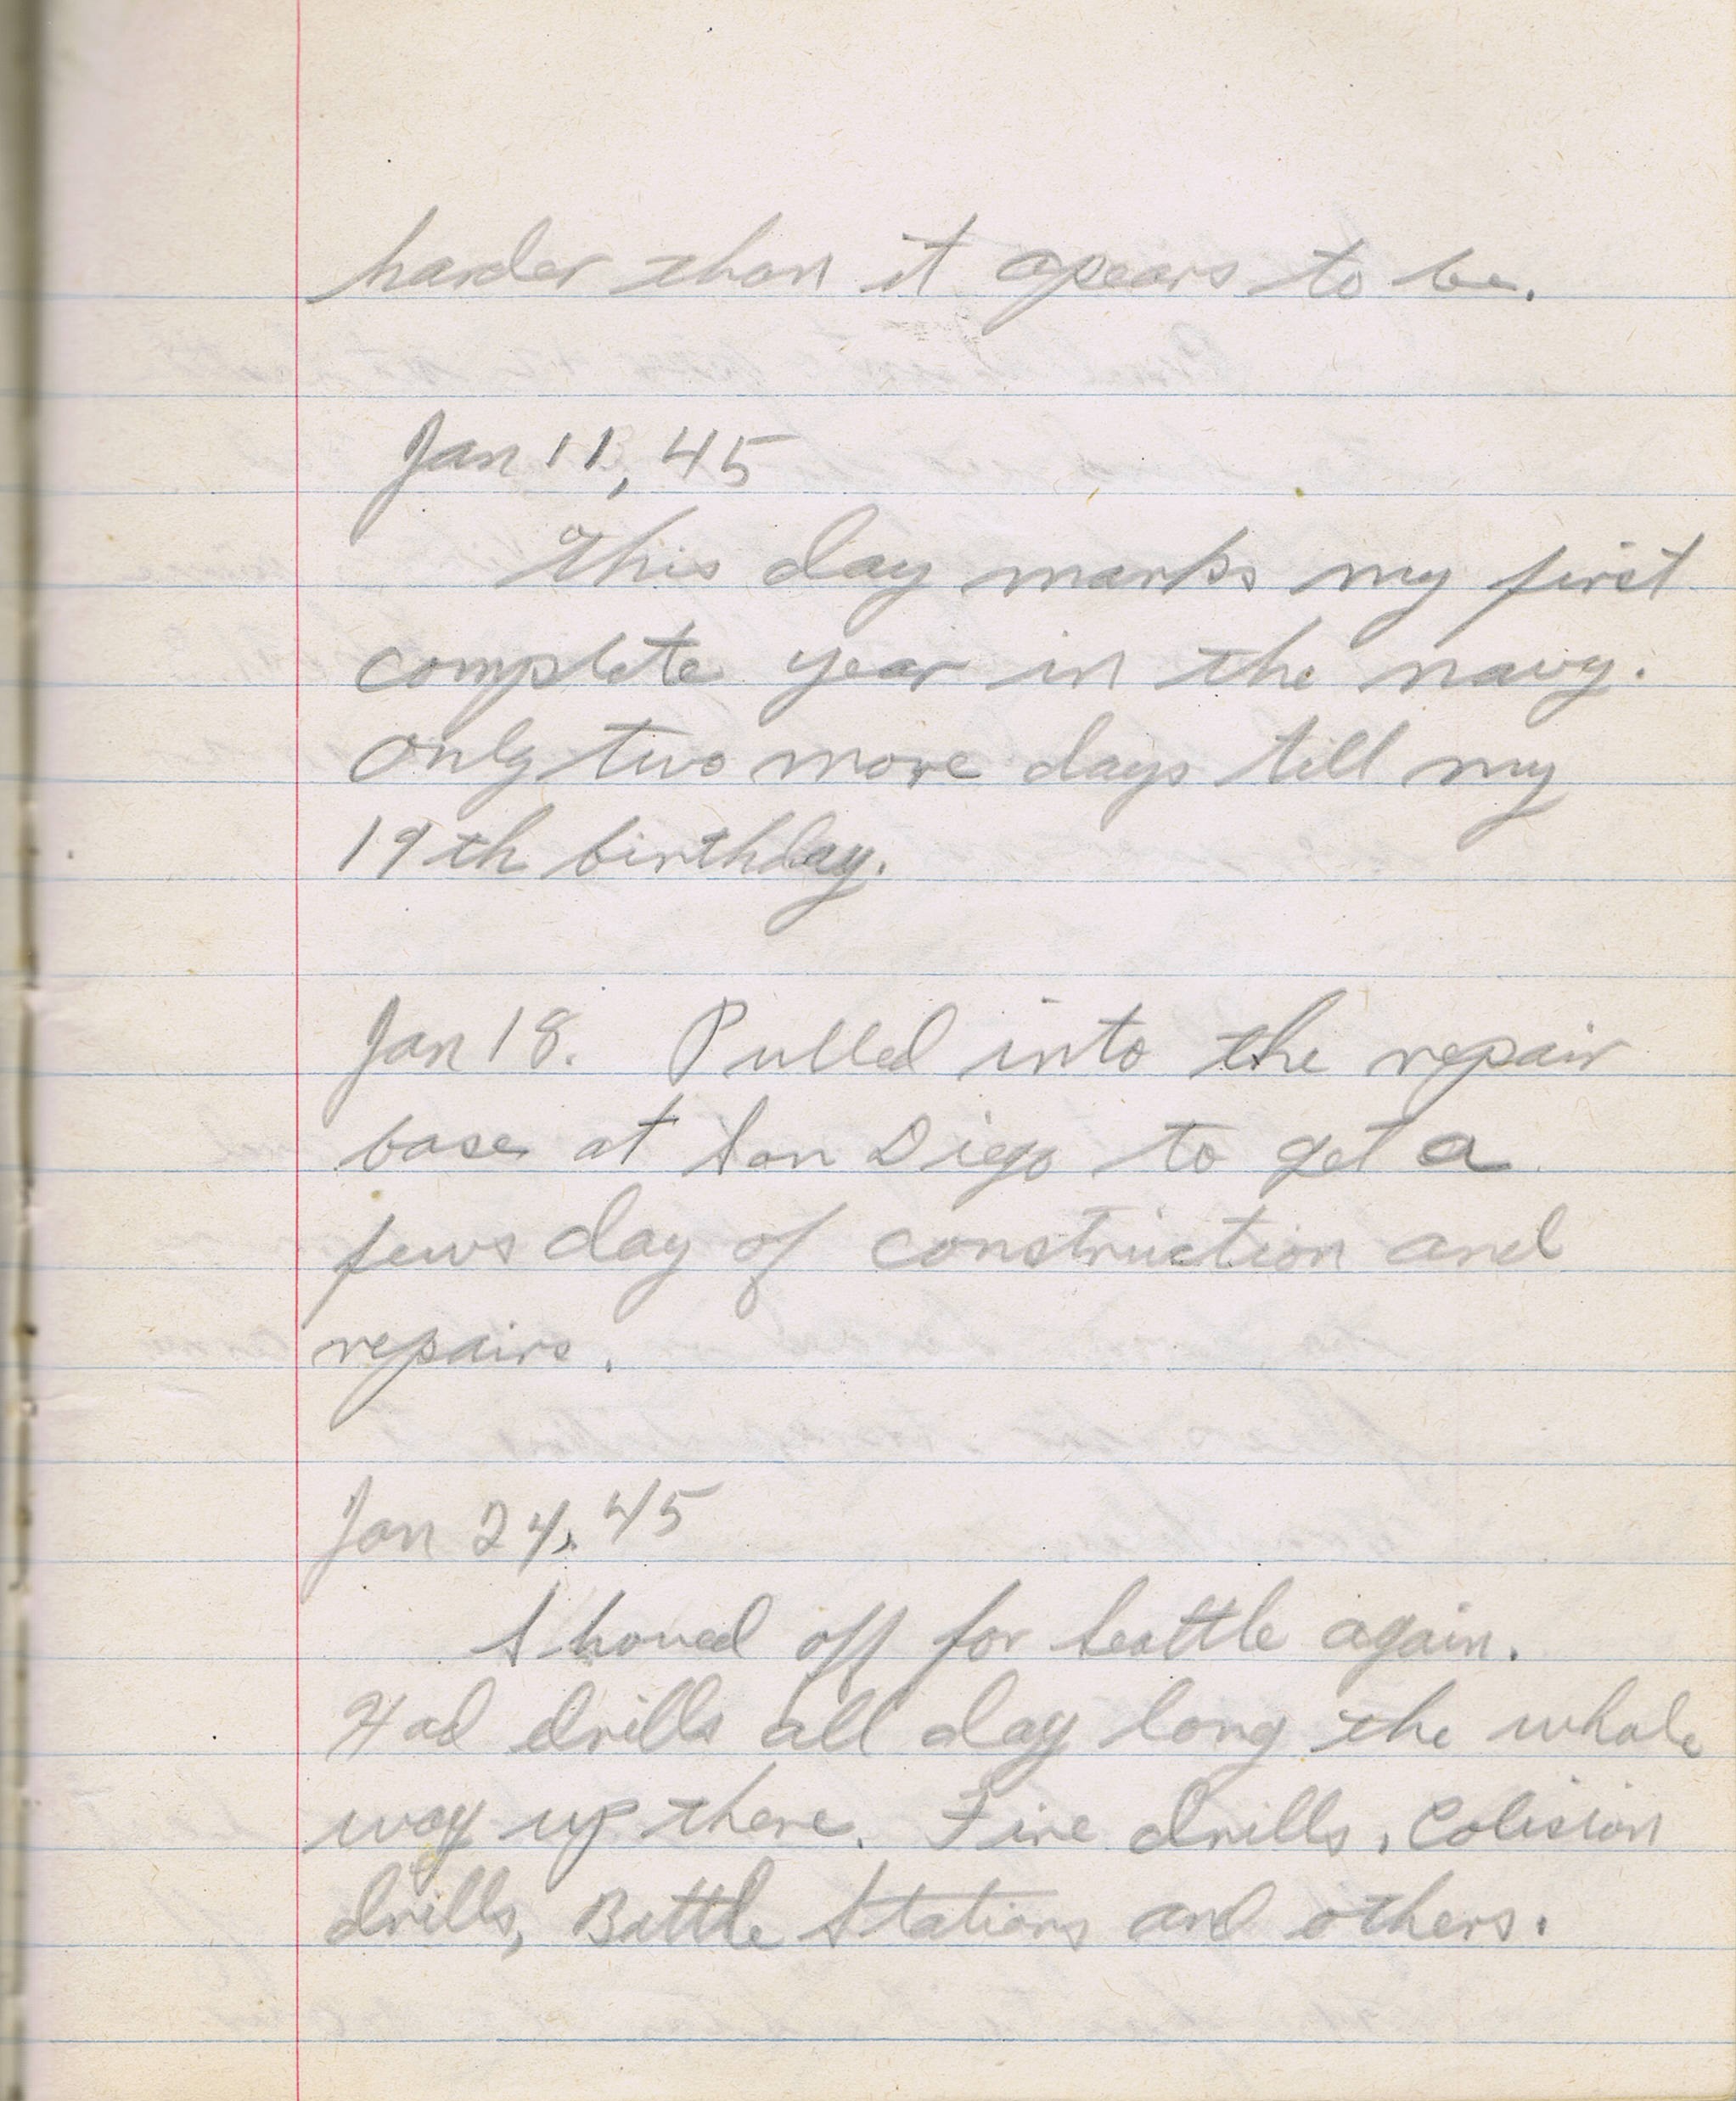 harder than it apears to be.
Jan 11, 45
This day marks my first
complete year in the navy.
Only two more days till my
19th birthday.
Jan 18. Pulled into the repair
base at San Diego to get a
fews day of construction and
repairs.
Jan 24, 45
Shoved off for Seattle again.
Had drills all day long the whole
way up there. Fire drills, Colision
drills, Battle Stations and others.